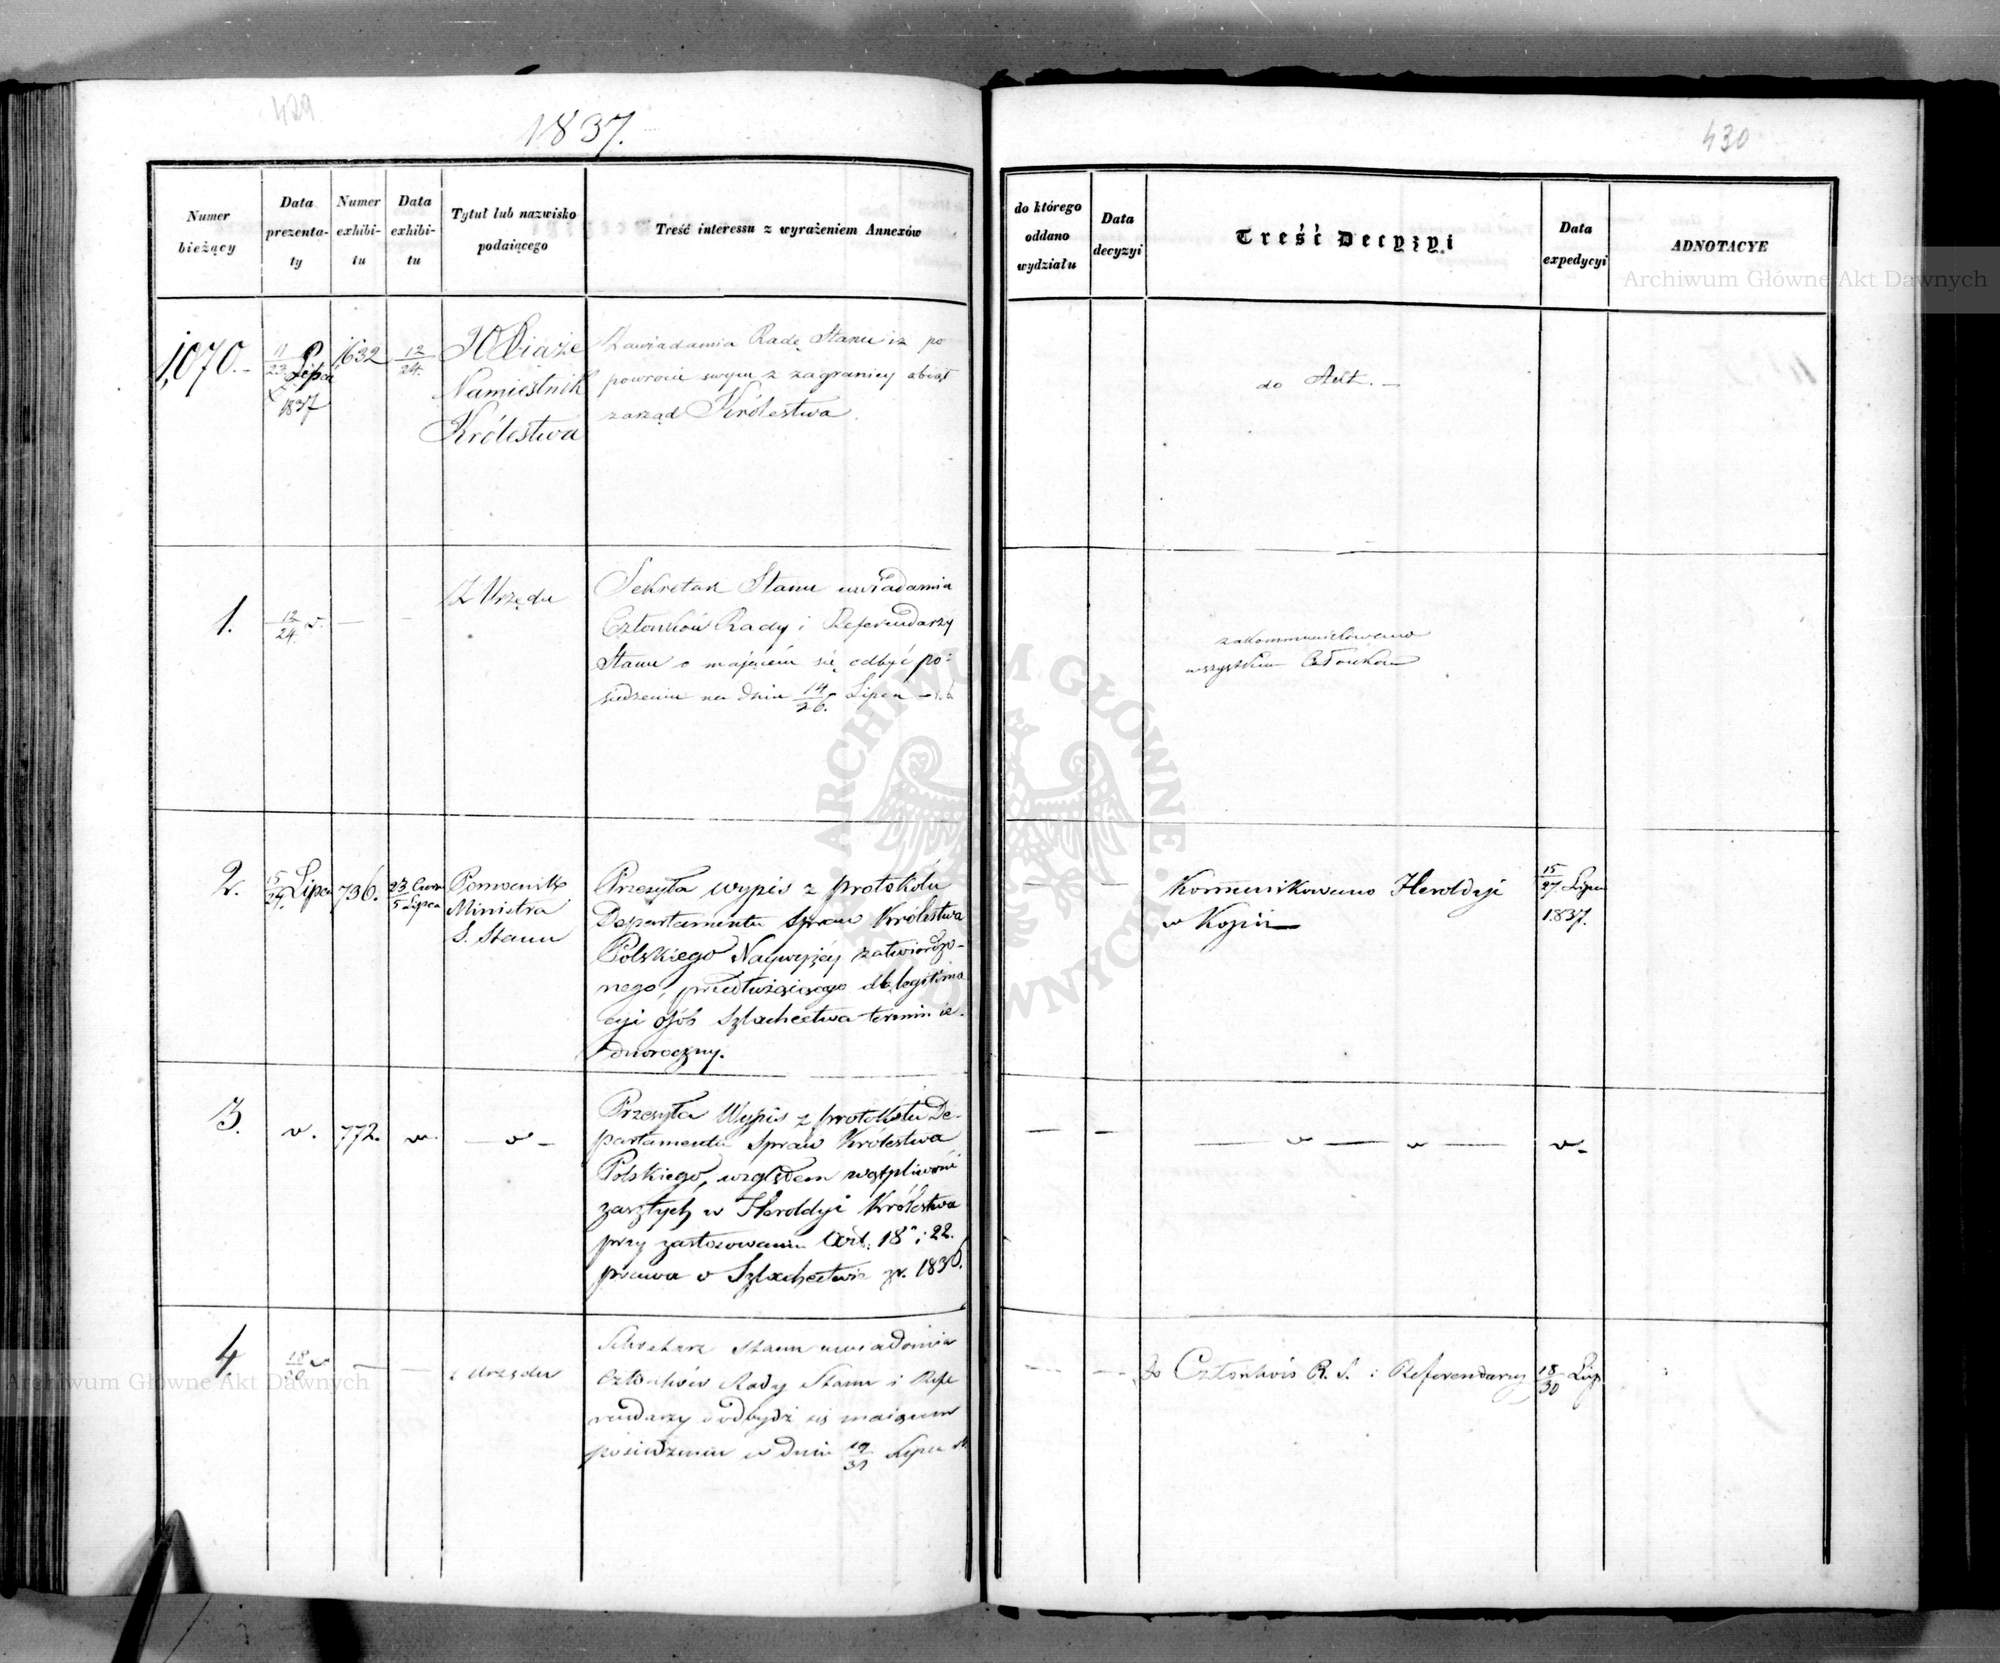 429
1837.
430
Numer bieżący
Data prezentaty
Numer exhibitu
Data exhibitu
Tytuł lub nazwisko podaiącego
Treść interessu z wyrażeniem Annexów
do którego oddano wydziału
Data decyzyi
Treść Decyzyi
Data expedycyi
ADNOTACYE
1,070.-
11/23 Lipca
1837
1632
12/24.
Xsiąże
Namiestnik
Królestwa
Zawiadamia Radę Stanu iż po
powrocie swym z zagranicy objął
zarząd Królestwa.
do Akt. —
1.
12/24 v.
Z Urzędu
Sekretarz Stanu uwiadamia
Członków Rady i Referendarzy
Stanu o mającém się odbyć po=
siedzeniu na dniu 14/26. Lipca
zakommunikowano
wszystkim Członkom
2.
15/27. Lipca
736.
23 Czerw
5 Lipca
Pomocnik
Ministra
S. Stanu
Przesyła wypis z protokółu
Departamentu Spraw Królestwa
Polskiego Naywyżéy zatwierdzo-
nego, przedłużaiącego dla legitima
cyi osób Szlachectwa termin ie-
dnoroczny.
Kommunikowano Heroldyi
w Kopii
15/27 Lipca
1837.
3.
v.
772.
v.
— v —
Przesyła Wypis z protokółu De-
partamentu Spraw Królestwa
Polskiego, względem wątpliwości
zaszłych w Heroldyi Królestwa
przy zastosowaniu Art. 18 i 22.
prawa o Szlachectwie z r. 1836.
— v — v —
v.
4.
18/30 v
z Urzędu
Sekretarz Stanu uwiadamia
Członków Rady Stanu i Refe
rendarzy o odbydź się maiącem
posiedzeniu w dniu 19/31 Lipca
Do Członków R. S. i Referendarzy
18/30 Lip
Archiwum Główne Akt Dawnych
Archiwum Główne Akt Dawnych
ARCHIWUM GŁÓWNE AKT DAWNYCH